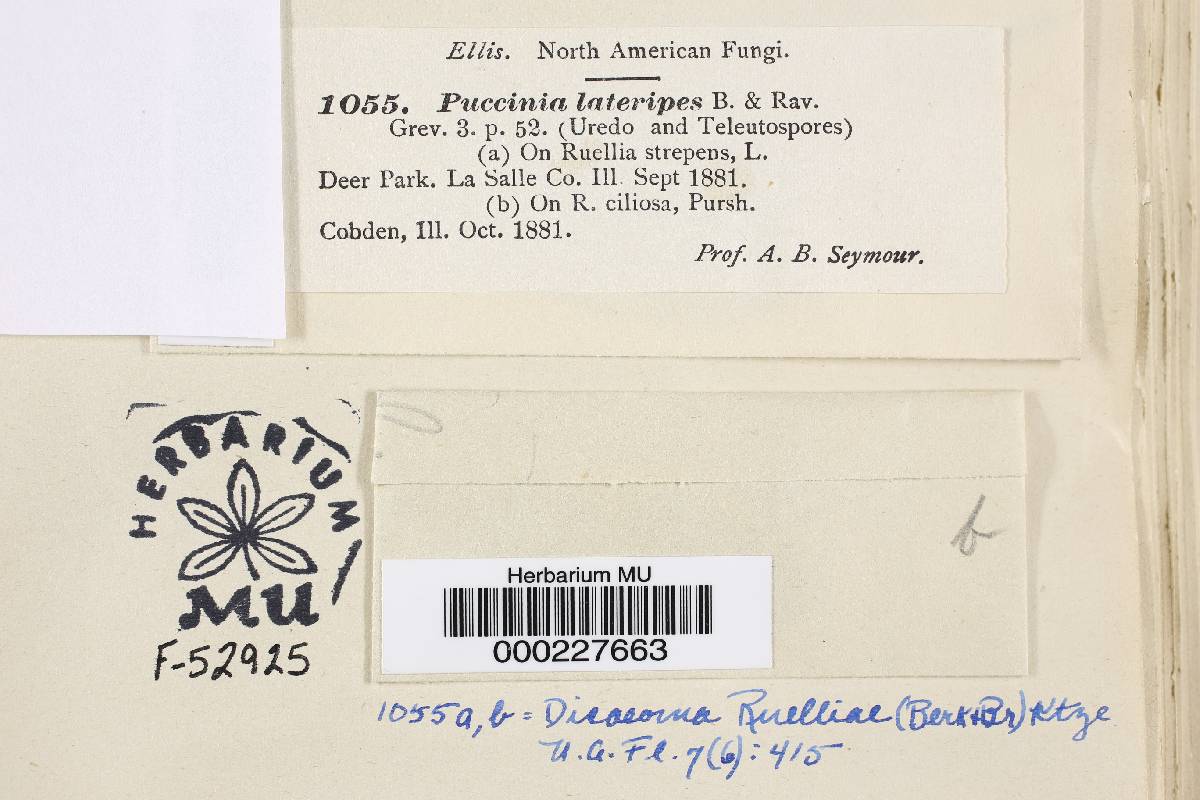 Ellis. North American Fungi.
1055. Puccinia lateripes B. & Rav.
Grev. 3. p. 52. (Uredo and Teleutospores)
(a) On Ruellia strepens, L.
Deer Park. La Salle Co. Ill. Sept 1881.
(b) On R. ciliosa, Pursh.
Cobden, Ill. Oct. 1881.
Prof. A. B. Seymour.
HERBARIUM
MU
F-52925
b
Herbarium MU
000227663
1055a, b = Dicaeoma Ruelliae (Berk+Br) Ktze
N.A. Fl. 7(6): 415